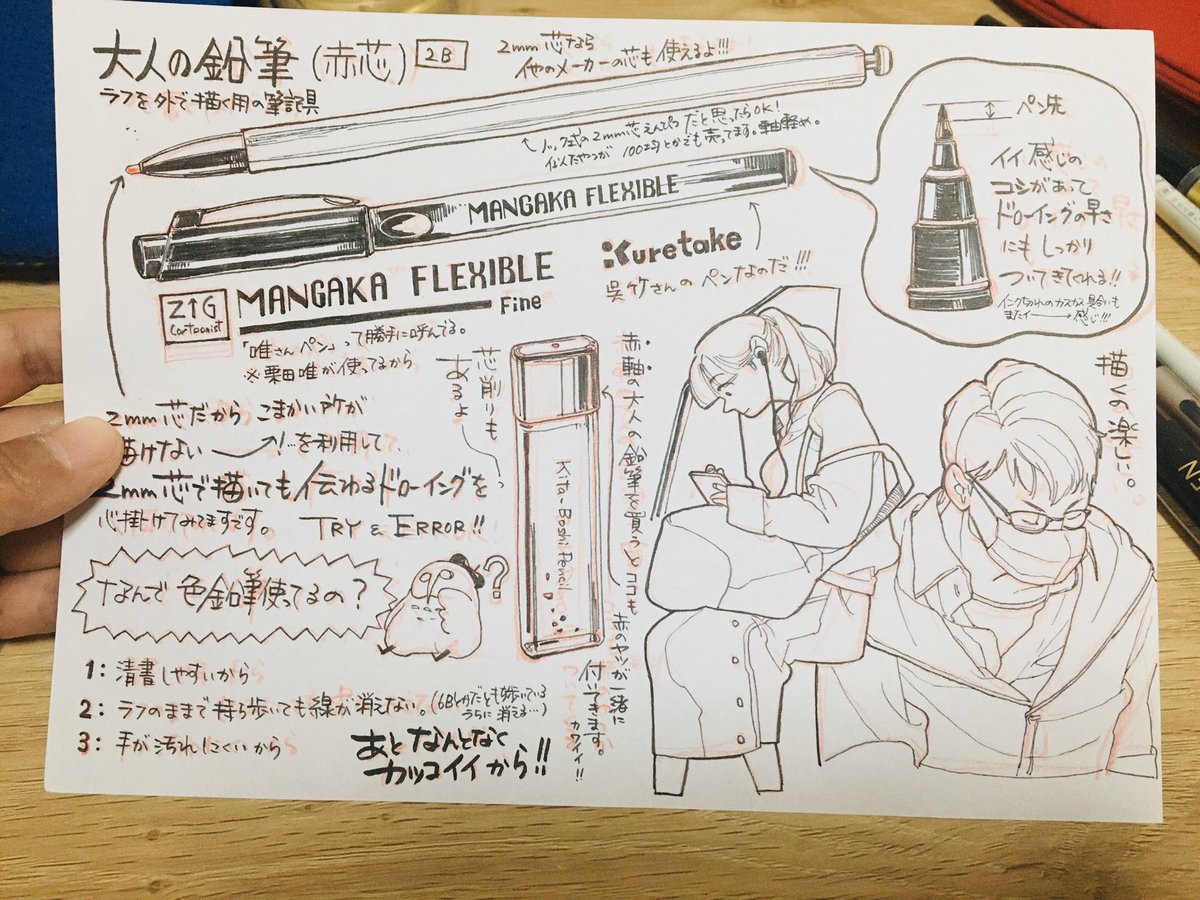 大人の鉛筆(赤芯) 2B
ラフを外で描く用の筆記具
2mm芯なら
他のメーカーの芯も使えるよ!!!
ノック式の2mm芯えんぴつだと思ったらOK!
似たやつが100均とかでも売ってます。軸軽め。
MANGAKA FLEXIBLE
Kuretake
呉竹さんのペンなのだ!!!
ZIG
Cartoonist
MANGAKA FLEXIBLE
Fine
「唯さんペン」って勝手に呼んでる。
※栗田唯が使ってるから
ペン先
イイ感じの
コシがあって
ドローイングの早さ
にもしっかり
ついてきてくれる!!
インクぎれのカスカス具合も
またイー感じ!!!
2mm芯だからこまかい所が
描けない を利用して
2mm芯で描いても伝わるドローイングを
心掛けてみてますです。 TRY & ERROR!!
芯削りも
あるよ
Kita-Boshi Pencil
赤・軸の大人の鉛筆を買うとココも
赤のヤツが一緒に
付いてきます。
カワイイ!!
描くの楽しい。
なんで色鉛筆使ってるの?
?
1:清書しやすいから
2:ラフのままで持ち歩いても線が消えない。(6Bとかだとも歩いている
うちに消える…)
3:手が汚れにくいから
あとなんとなく
カッコイイから!!